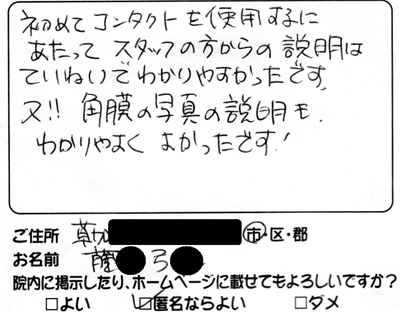 初めてコンタクトを使用するに
あたって スタッフの方からの説明は
ていねいでわかりやすかったです
又!! 角膜の写真の説明も、
わかりやすく よかったです!
ご住所 草加 市・区・郡
お名前 弓
院内に掲示したり、ホームページに載せてもよろしいですか?
□よい ☑匿名ならよい □ダメ